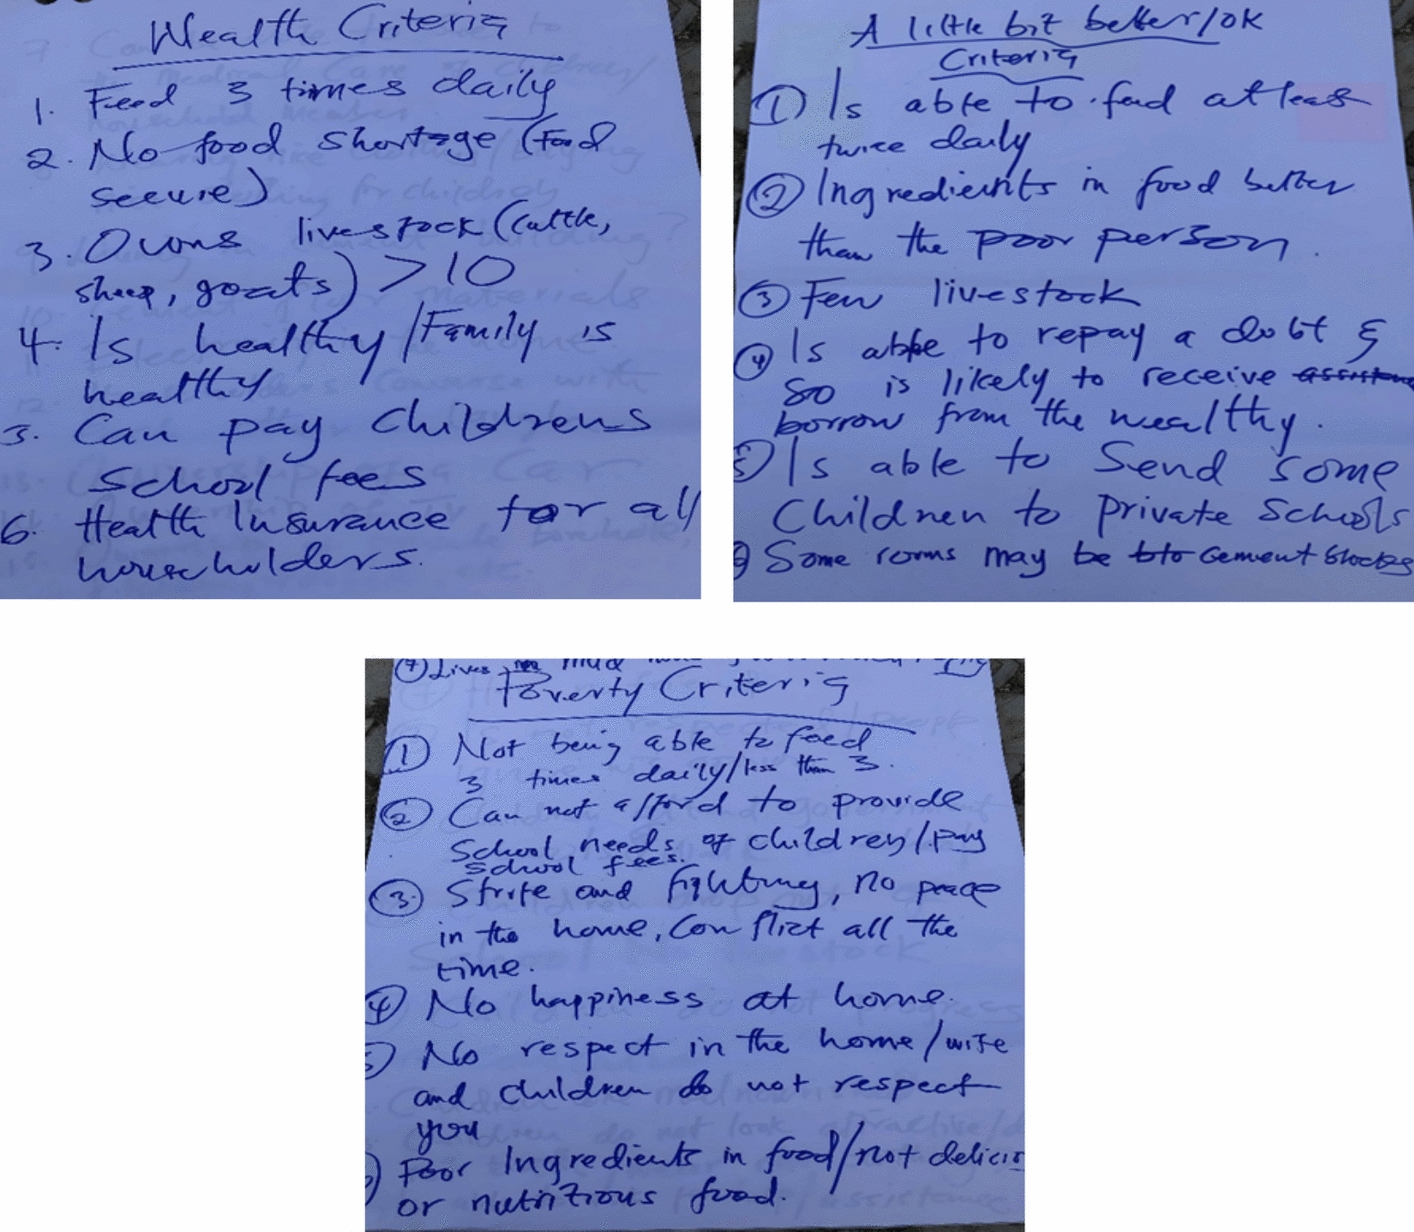 Wealth Criteria
1. Feed 3 times daily
2. No food shortage (food
secure)
3. Owns livestock (cattle,
sheep, goats) > 10
4. Is healthy/Family is
healthy
5. Can pay childrens
School fees
6. Health Insurance for all
householders.
A little bit better/OK
Criteria
① Is able to feed at least
twice daily
② Ingredients in food better
than the poor person.
③ Few livestock
④ Is able to repay a debt &
so is likely to receive
borrow from the wealthy.
5) Is able to Send some
Children to private Schools
Some rooms may be cement blocks
④ Lives in mud
Poverty Criteria
① Not being able to feed
3 times daily/less than 3.
② Can not afford to provide
School needs of children/pay
school fees.
③ Strife and fighting, no peace
in the home, Conflict all the
time.
④ No happiness at home.
5) No respect in the home/wife
and children do not respect
you
) Poor Ingredients in food/not
or nutritious food.